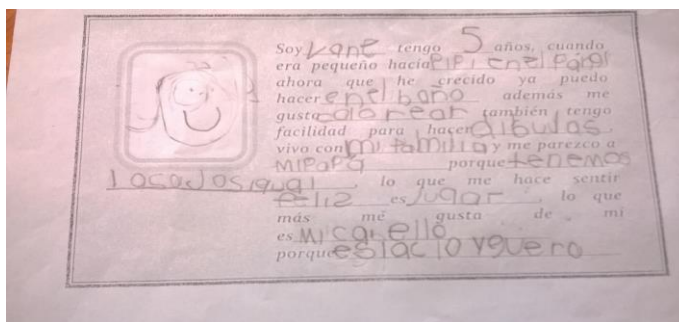 Soy Vane tengo 5 años, cuando
era pequeño hacia PiPi en el Pañal
ahora que he crecido ya puedo
hacer en el baño además me
gusta colorear también tengo
facilidad para hacer dibujos
vivo con mi familia y me parezco a
MiPaPa porque tenemos
los ojos igual, lo que me hace sentir
feliz es jugar, lo que
más mé gusta de mi
es Mi cabello
porque es lac io y guero